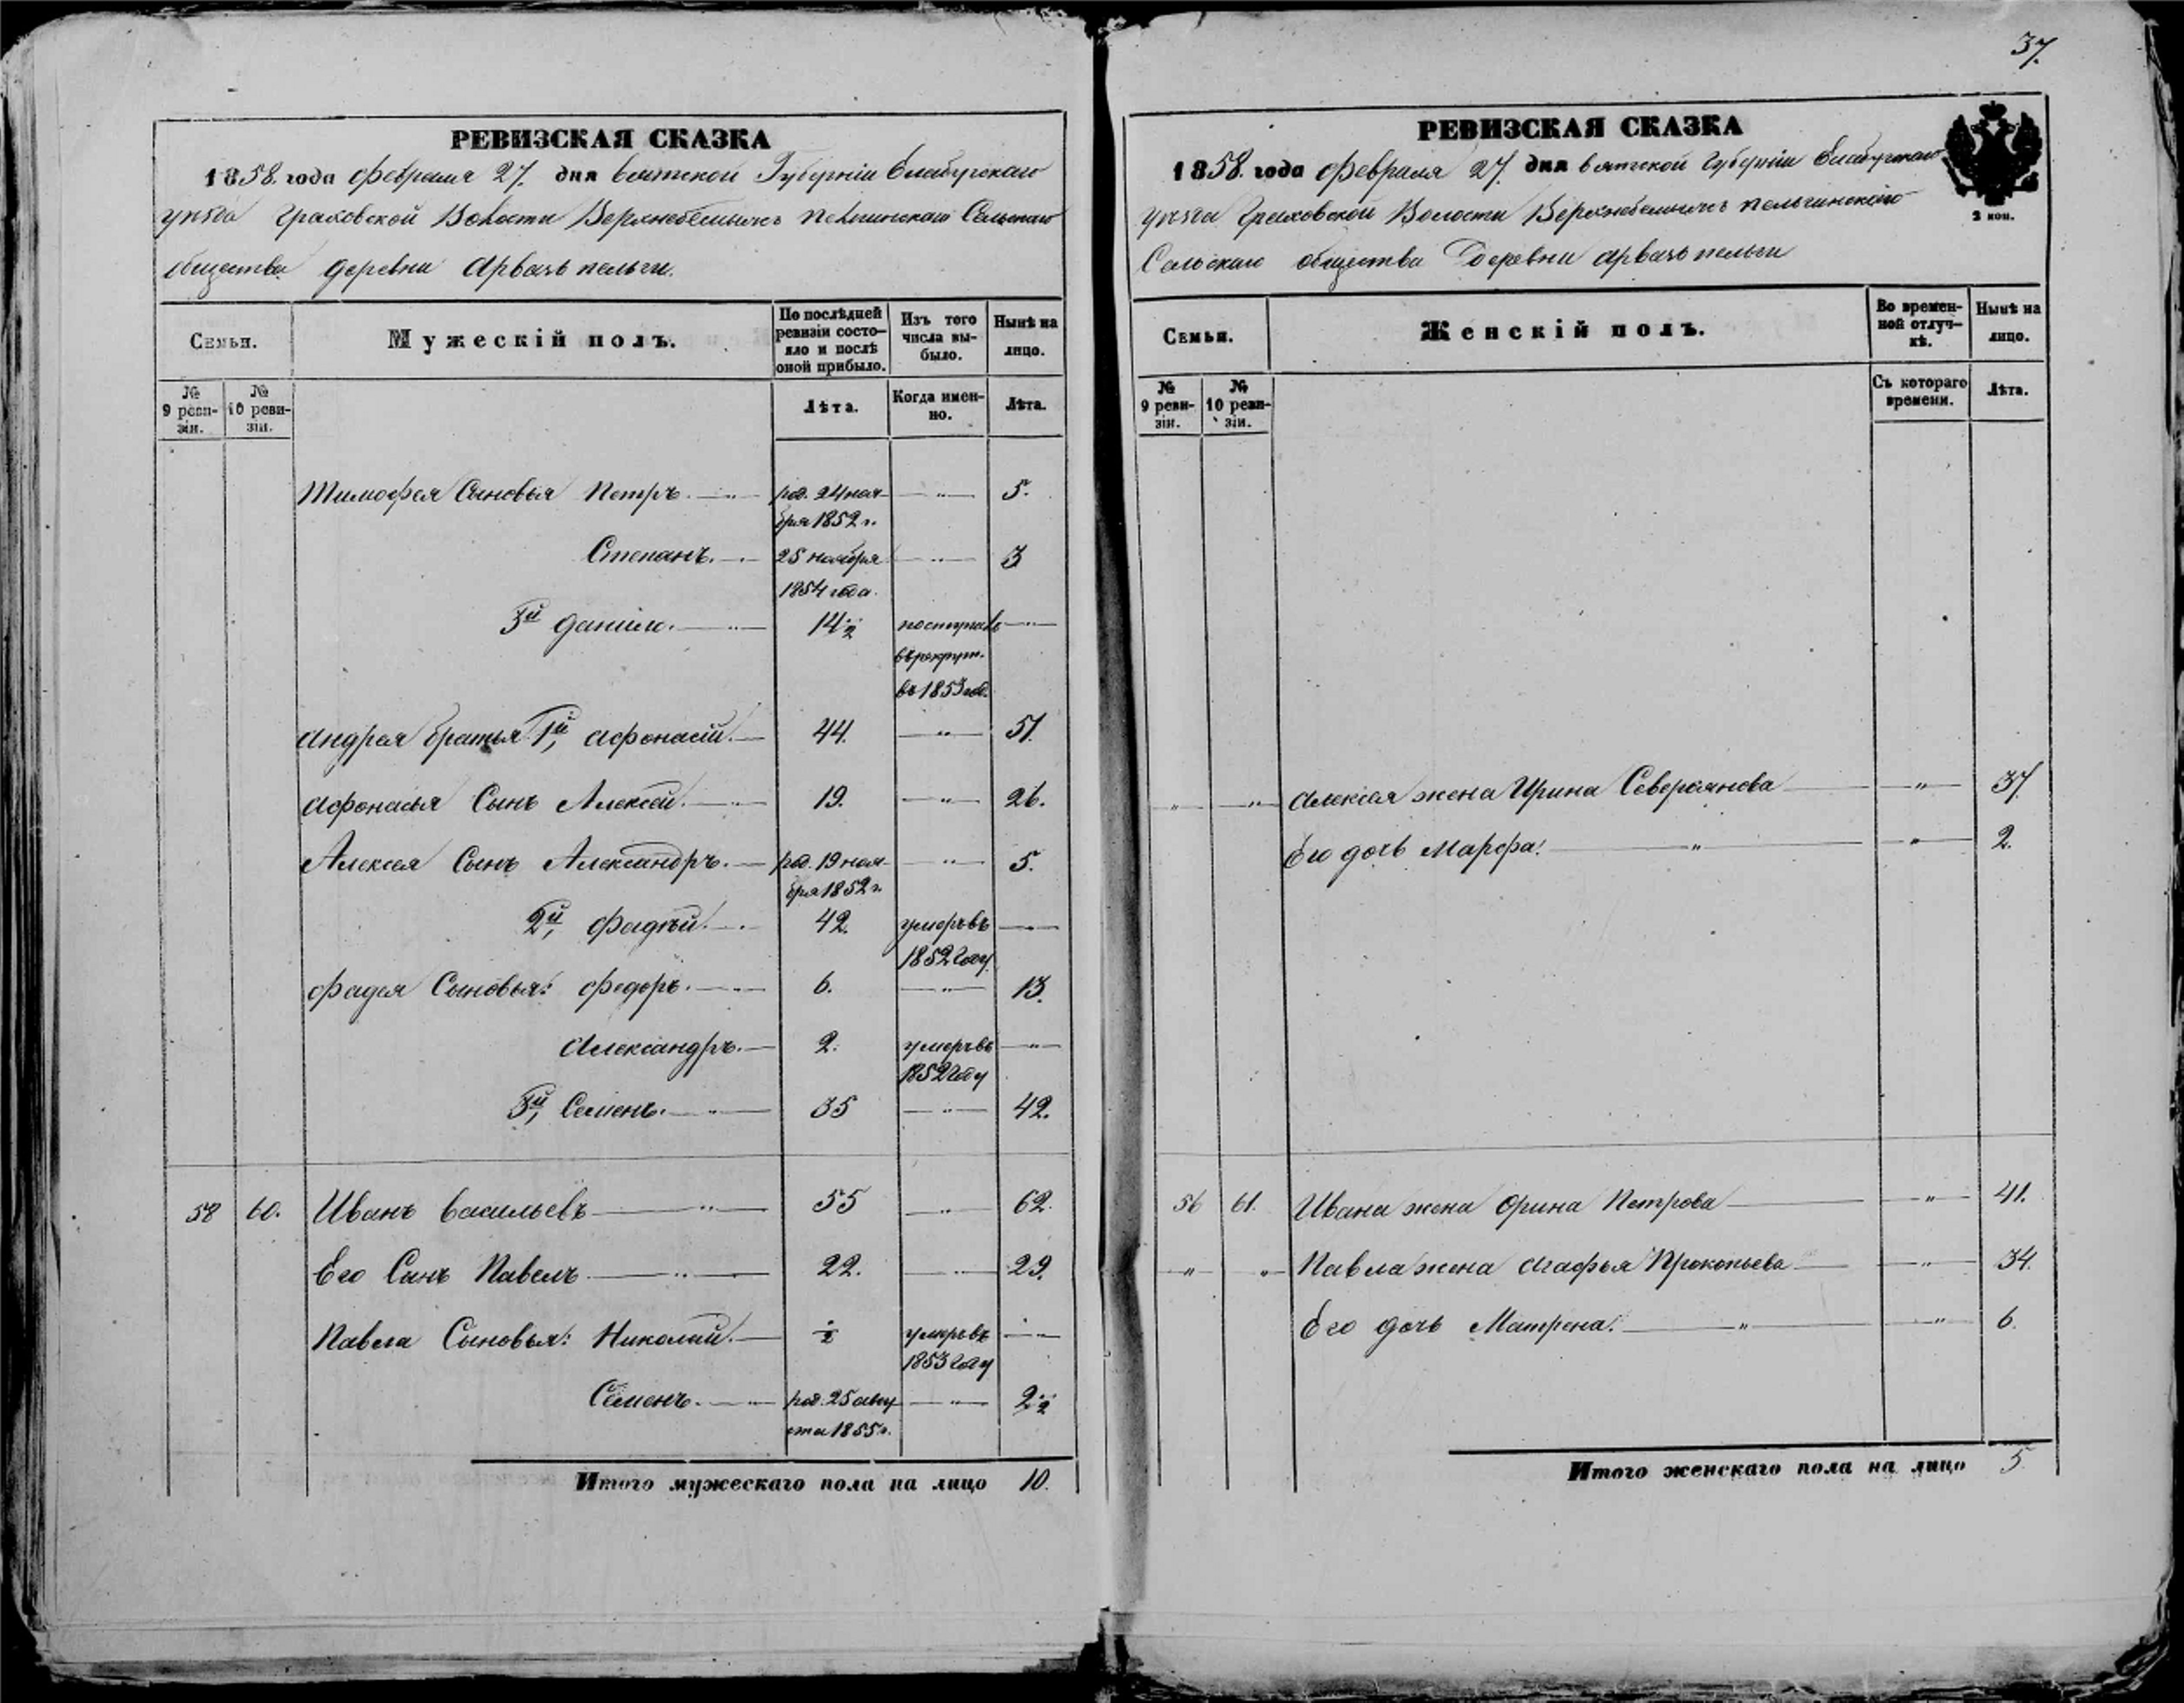 37.
РЕВИЗСКАЯ СКАЗКА
1858. года февраля 27. дня Вятской Губерніи Елабугскаго
уезда Граховской Волости Верхнебемыжъ пельгинскаго Сельскаго
общества деревни Арвазь пельги.
Семьи.
Мужескій полъ.
По послѣдней ревизіи состо-
яло и послѣ
оной прибыло.
Изъ того
числа вы-
было.
Нынѣ на
лицо.
№
9 реви-
зіи.
№
10 реви-
зіи.
Лѣта.
Когда имен-
но.
Лѣта.
Тимофея Сыновья Петръ. — " — род. 24 ноя- — " — 5.
бря 1852 г.
Степанъ. — " — 25 ноября — " — 3
1854 года.
3й Данило. — " — 14 ½ поступилъ — " —
въ рекрут.
въ 1853 год.
Андрея братья 1й, Афонасій. — 44. — " — 51.
Афонасья Сынъ Алексей. — " — 19. — " — 26.
Алексея Сынъ Александръ. — род. 19 ноя- — " — 5.
бря 1852 г.
2й, Фадѣй. — " — 42. умеръ въ — " —
1852 году.
Фадея Сыновья: Федоръ. — " — 6. — " — 13.
Александръ. — 2. умеръ въ — " —
1852 году
3й, Семенъ. — " — 35 — " — 42.
58 60. Иванъ Васильевъ — " — 55 — " — 62.
Его Сынъ Павелъ — " — 22. — " — 29.
Павела Сыновья: Николай. — ½ умеръ въ — " —
1853 году
Семенъ. — " — род. 25 авгу- — " — 2 ½
ста 1855 г.
Итого мужескаго пола на лицо 10.
РЕВИЗСКАЯ СКАЗКА
1858. года февраля 27. дня Вятской Губерніи Елабугскаго
уезда Граховской Волости Верхнебемыжъ пельгинскаго
Сельскаго общества Деревни Арвазь пельги
3 коп.
Семьи.
Женскій полъ.
Во времен-
ной отлуч-
кѣ.
Нынѣ на
лицо.
№
9 реви-
зіи.
№
10 реви-
зіи.
Съ котораго
времени.
Лѣта.
" — " — Алексея жена Ирина Северьянова — " — 37.
Его дочь Марфа. — " — " — 2.
56 61. Ивана жена Орина Петрова — " — 41.
" — " — Павла жена Агафья Прокопьева — " — 34.
Его дочь Матрена. — " — " — 6.
Итого женскаго пола на лицо 5